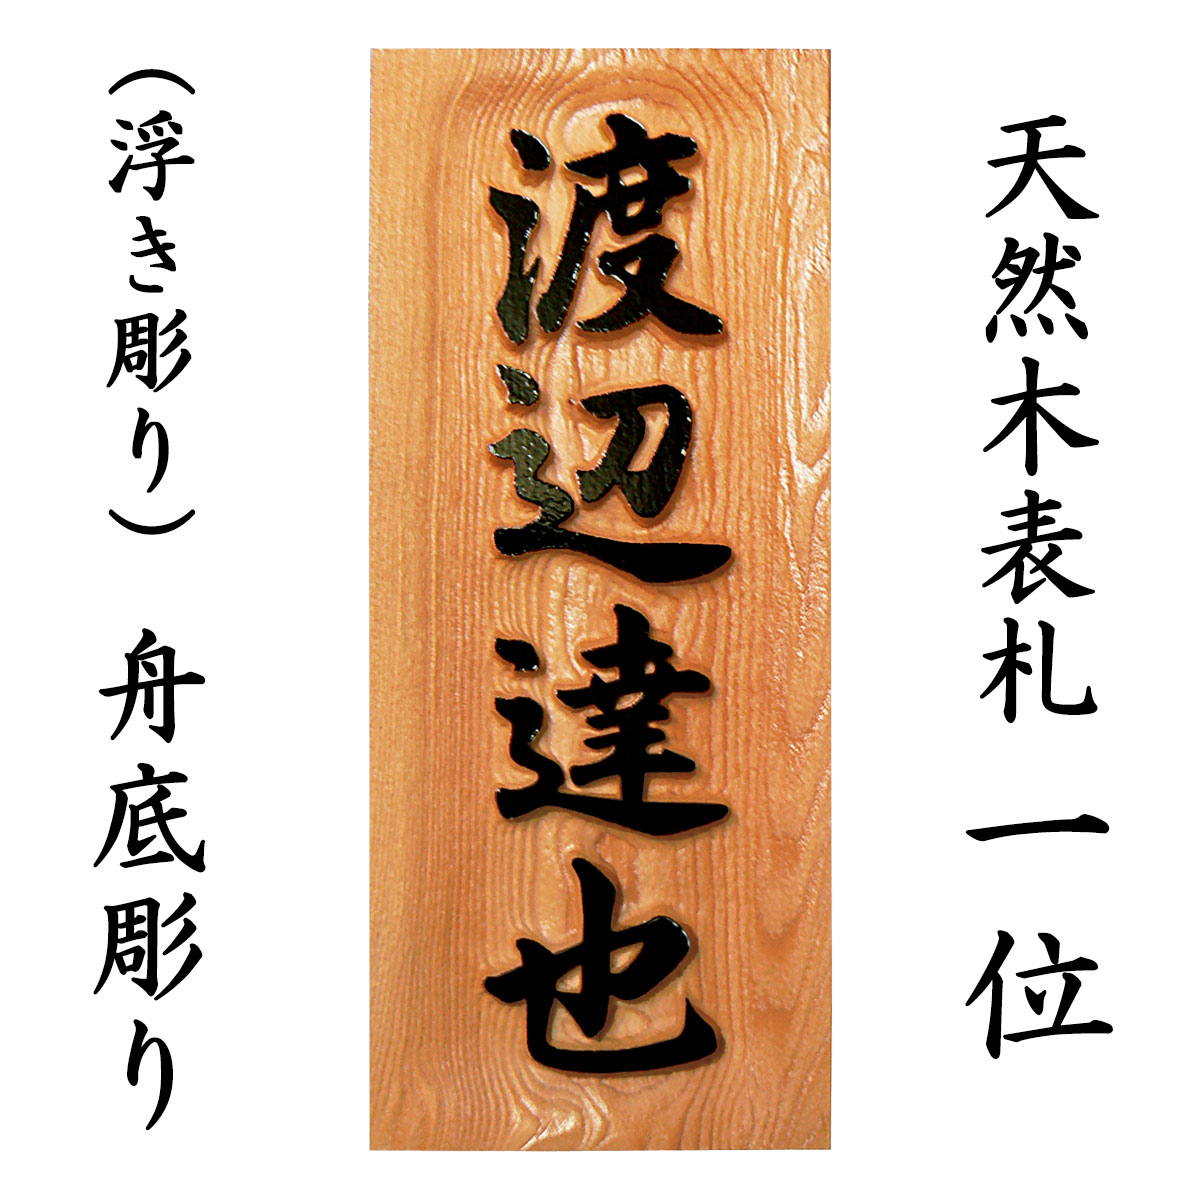 天然木表札 一位
渡辺達也
(浮き彫り) 舟底彫り